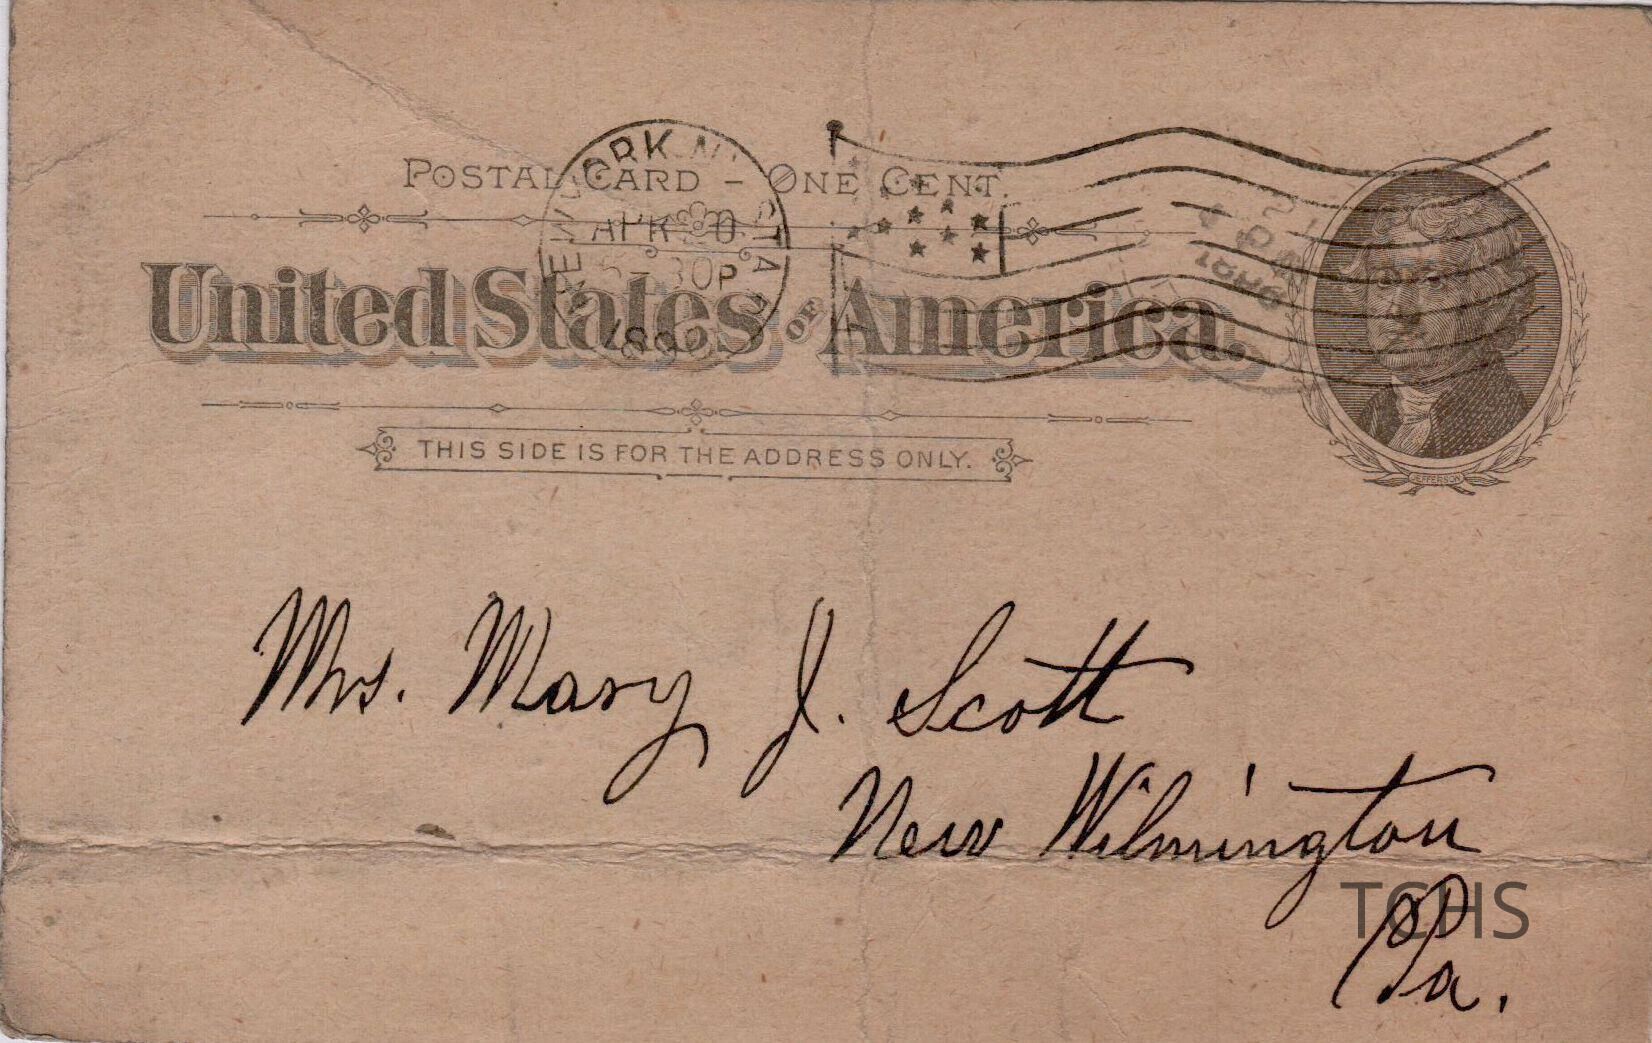 POSTAL CARD – ONE CENT.
NEW YORK, N.Y. STA
APR 20
30P
United States OF America.
THIS SIDE IS FOR THE ADDRESS ONLY.
JEFFERSON
Mrs. Mary J. Scott
New Wilmington
Pa.
TCHS